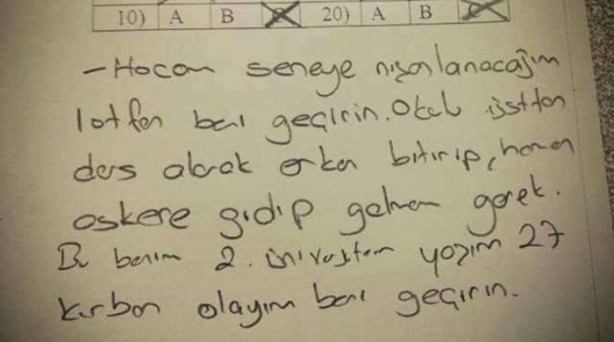 10) A B C 20) A B C
-Hocam seneye nişanlanacağım
lütfen beni geçirin. Okulu üstten
ders alarak erken bitirip, hemen
askere gidip gelmem gerek.
Bu benim 2. üniversitem yaşım 27
kurban olayım beni geçirin.